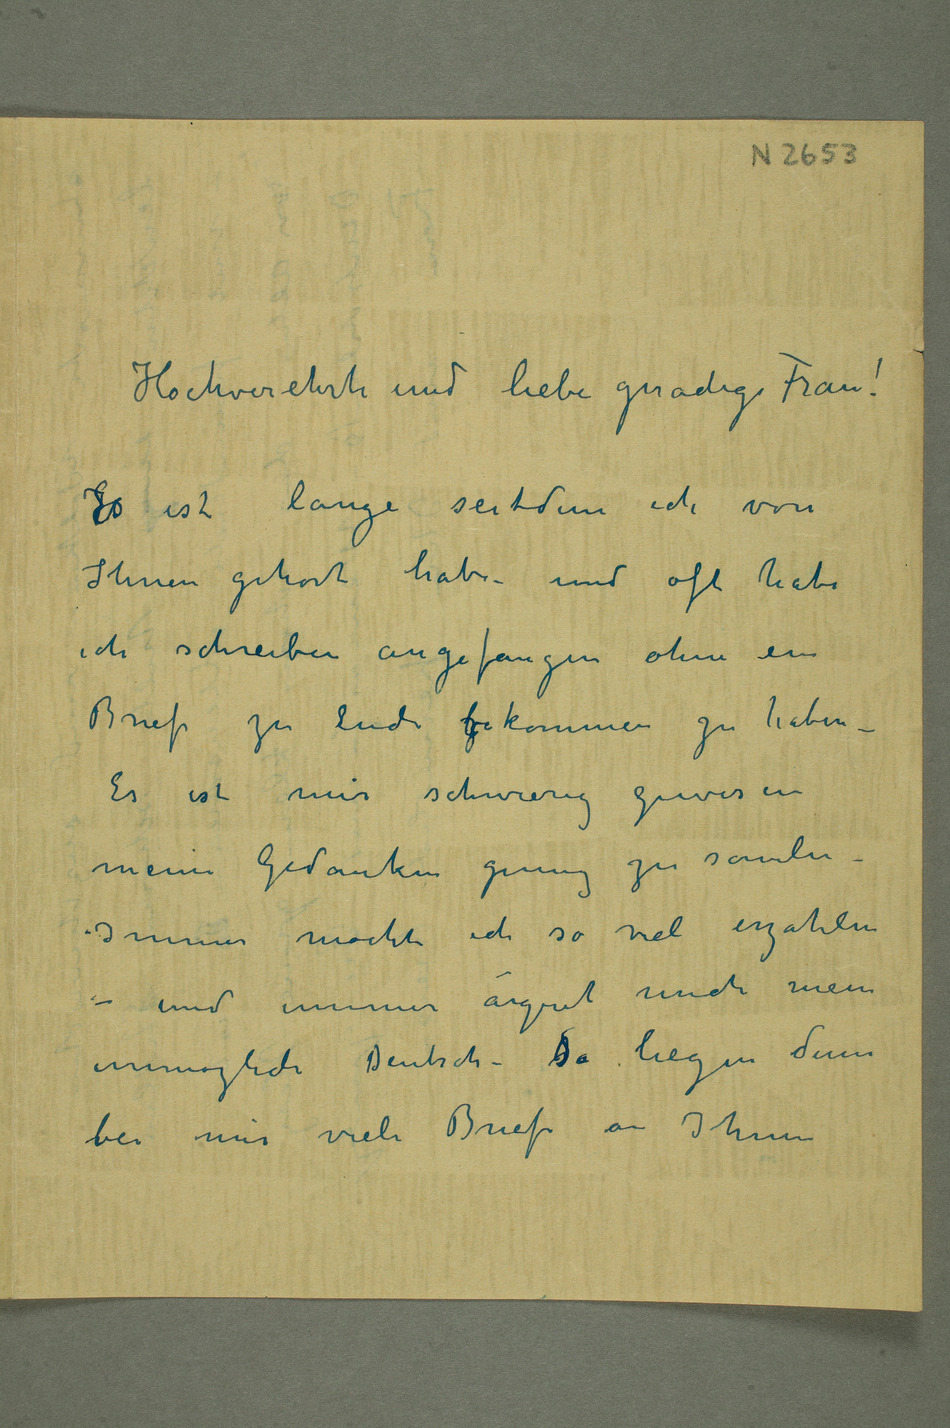 N 2653
Hochverehrte und liebe gnadige Frau!
Es ist lange seitdem ich von
Ihnen gehort habe – und oft habe
ich schreiben angefangen ohne ein
Brief zu Ende bekommen zu haben –
Es ist mir schwierig gewesen
meine Gedanken genug zu samlen –
Immer mochte ich so viel erzahlen
– und immer ärgert mich mein
unmoglich Deutsch – Da liegen denn
bei mir viele Briefe an Ihnen